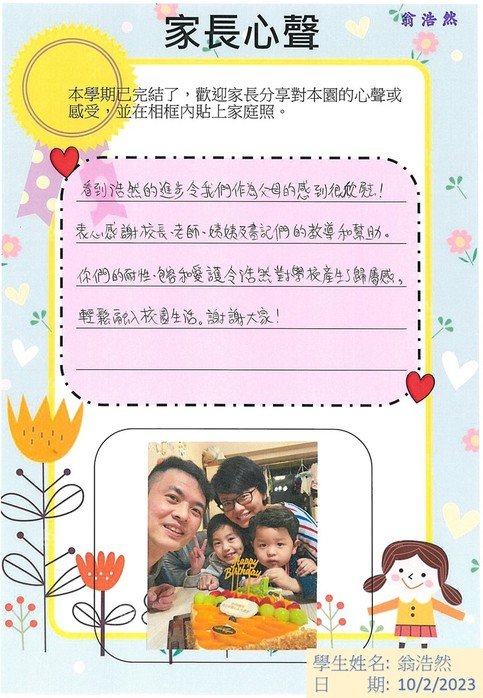 翁浩然
家長心聲
本學期已完結了，歡迎家長分享對本園的心聲或
感受，並在相框內貼上家庭照。
看到浩然的進步令我們作為父母的感到很欣慰！
衷心感謝校長、老師、姨姨及書記們的教導和幫助。
你們的耐性、包容和愛護令浩然對學校產生了歸屬感，
輕鬆融入校園生活。謝謝大家！
Happy
Birthday
學生姓名: 翁浩然
日 期: 10/2/2023